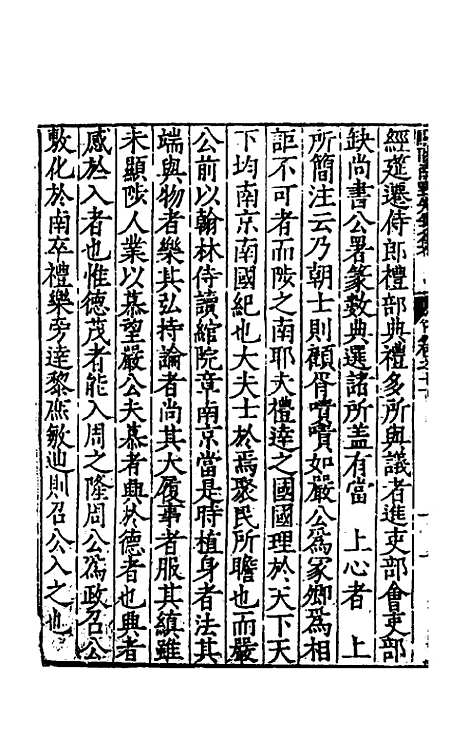 經筵遷侍郎禮部典禮多所與議者進吏部會吏部
缺尚書公署篆數典選諸所盖有當　上心者　上
所簡注云乃朝士則顧胥嘖嘖如嚴公爲冢卿爲相
詎不可者而陟之南耶夫禮達之國國理於天下天
下均南京南國紀也大夫士於焉聚民所瞻也而嚴
公前以翰林侍讀綰院章南京當是時植身者法其
端與物者樂其弘持論者尚其大履事者服其縝雖
未顯陟人業以慕望嚴公夫慕者興於德者也典者
感於入者也惟德茂者能入周之隆周公爲政召公
敷化於南卒禮樂旁達黎庶敏迪則召公入之也